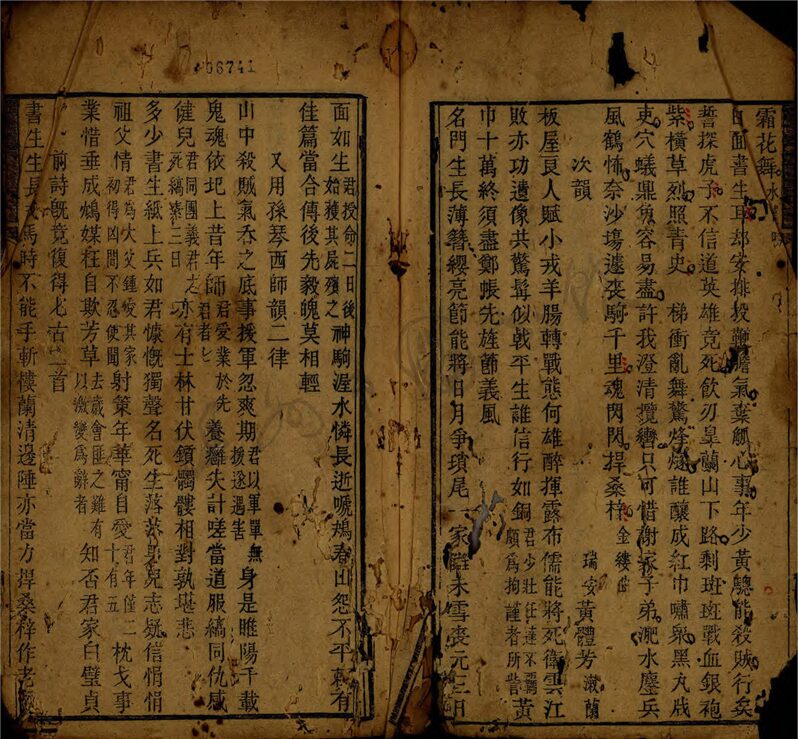 霜花舞水
面書生耳却安排投鞭膽氣葉瓤心事年少黃驄能殺賊行矣
誓探虎子不信道英雄竟死飲刃皐蘭山下路剩班班戰血銀袍
紫橫草烈照青史 梯衝亂舞驚烽燧誰釀成紅巾嘯聚黑丸戕
吏穴蟻鼎魚容易盡許我澄清攬轡只可惜謝家子弟淝水鏖兵
風鶴怖奈沙場遽喪騎千里魂閃閃捍桑梓 金縷曲
次韻 瑞安黃體芳漱蘭
板屋良人賦小戎羊腸轉戰態何雄醉揮露布儒能將死衛雲江
敗亦功遺像共驚髯似戟平生誰信行如銅君少壯任達不羈頗為拘謹者所訾黃
巾十萬終須盡鄭帳先旌節義風
名門生長薄簪纓亮節能將日月爭瑣尾一家讎未雪喪元三日
面如生君授命二日後始獲其屍殯之神駒渥水憐長逝嗁鴂春山怨不平賴有
佳篇當合傳後先毅魄莫相輕
又用孫琴西師韻二律
山中殺賊氣吞之底事援軍忽爽期君以軍單無援遂遇害身是睢陽千載
鬼魂依圯上昔年師君受業於先君者七養癰失計嗟當道服縞同仇感
健兒君同團義君之死縞素三日亦有士林甘伏鎖髑髏相對孰堪悲
多少書生紙上兵如君慷慨獨聲名死生落落男兒志疑信悁悁
祖父情君為大父鍾愛其家初得凶問不忍使聞射策年華甯自愛君年僅二十有五枕戈事
業惜垂成鴆媒枉自欺芳草去歲會匪之難有以激變為辭者知否君家白璧貞
前詩旣竟復得七古一首
書生生長戎馬時不能手斬樓蘭清邊陲亦當方捍桑梓作老
06741